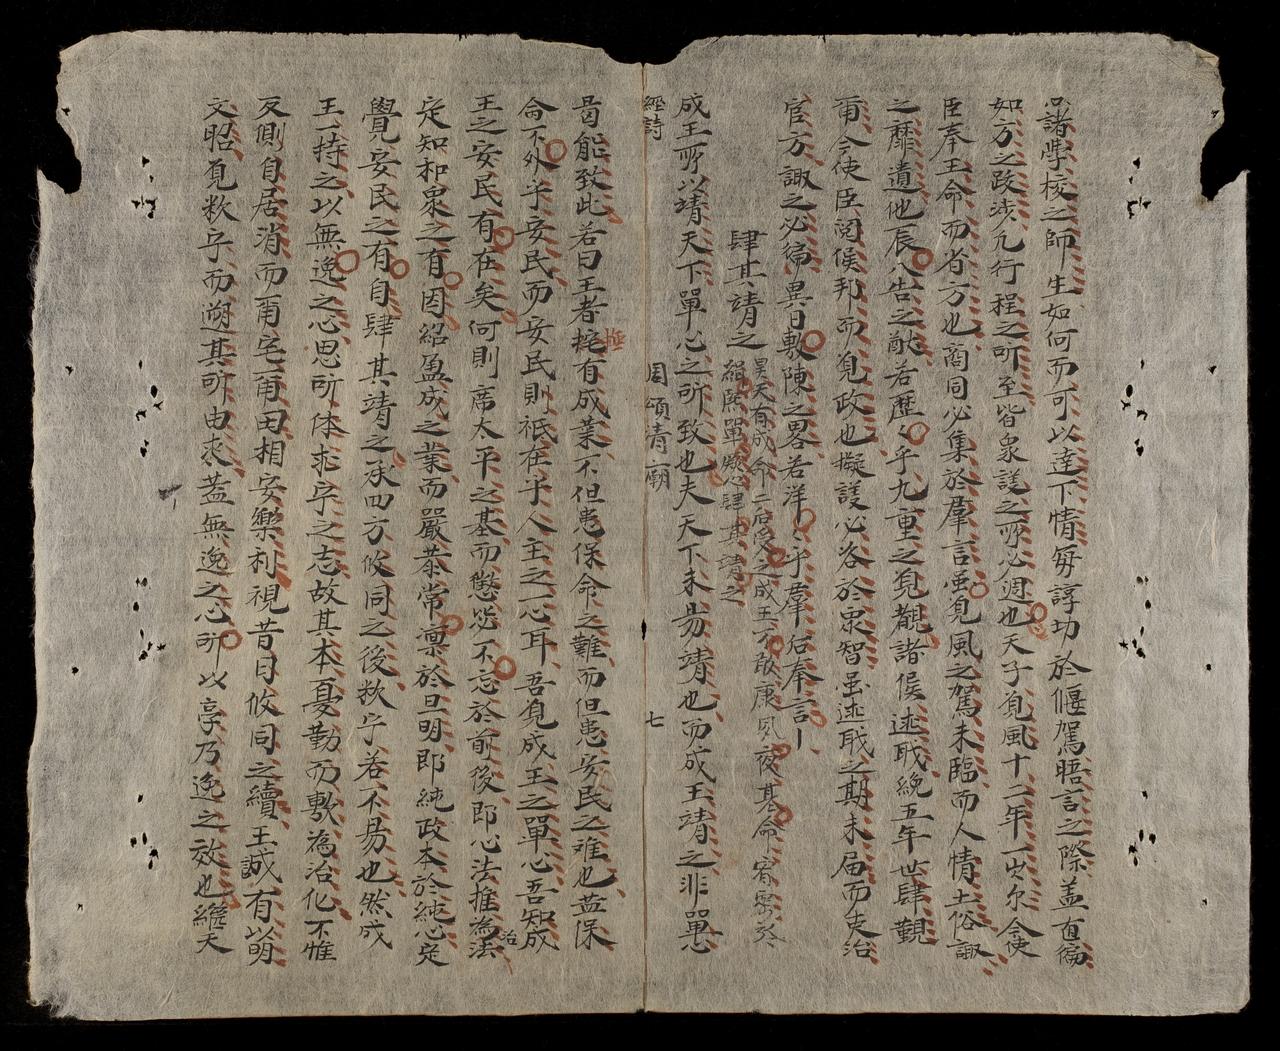 以諸學校之師生如何而可以達下情毎諄切於偃駕晤言之際盖有徧
如方之政涉九行程之所至皆衆護之所必週也天子覓風十二年一出尔今使
臣奉王命而省方也商同必集於羣言虽覓風之駕未臨而人情土俗諏
之靡遺他辰入告之猷若歷々乎九重之覓覲諸侯述职纔五年世肆覲
甭今使臣閲侯邦而覓政也擬護必洛於衆智虽述职之期未届而吏治
官方諏之必徧異日敷陳之畧若洋々乎羣后奉言
肆其靖之
昊天有成命二后受之成王不敢康夙夜基命宥密於
緝熙單厥心肆其靖之
成王所以靖天下單心之所致也夫天下未易靖也而成王靖之非單心
經詩
周頌清廟
七
曷能致此若曰王者撫有成業不但患保命之難而但患安民之难也盖保
命不外乎安民而安民則祇在乎人主之一心耳吾覓成王之單心吾知成
王之安民有在矣何則席太平之基而懲毖不忘於前後即心法推為治法
定知和衆之有因紹盈成之業而嚴恭常凛於旦明即純政本於純心定
覺安民之有自肆其靖之承四方攸同之後教字若不易也然成
王一持之以無逸之心思所体求字之志故其本憂勤而敷為治化不惟
反側自居消而甭宅甭田相安樂利視昔日攸同之續王誠有以萌
文昭覓教字而遡其所由求盖無逸之心所以享乃逸之效也繼天